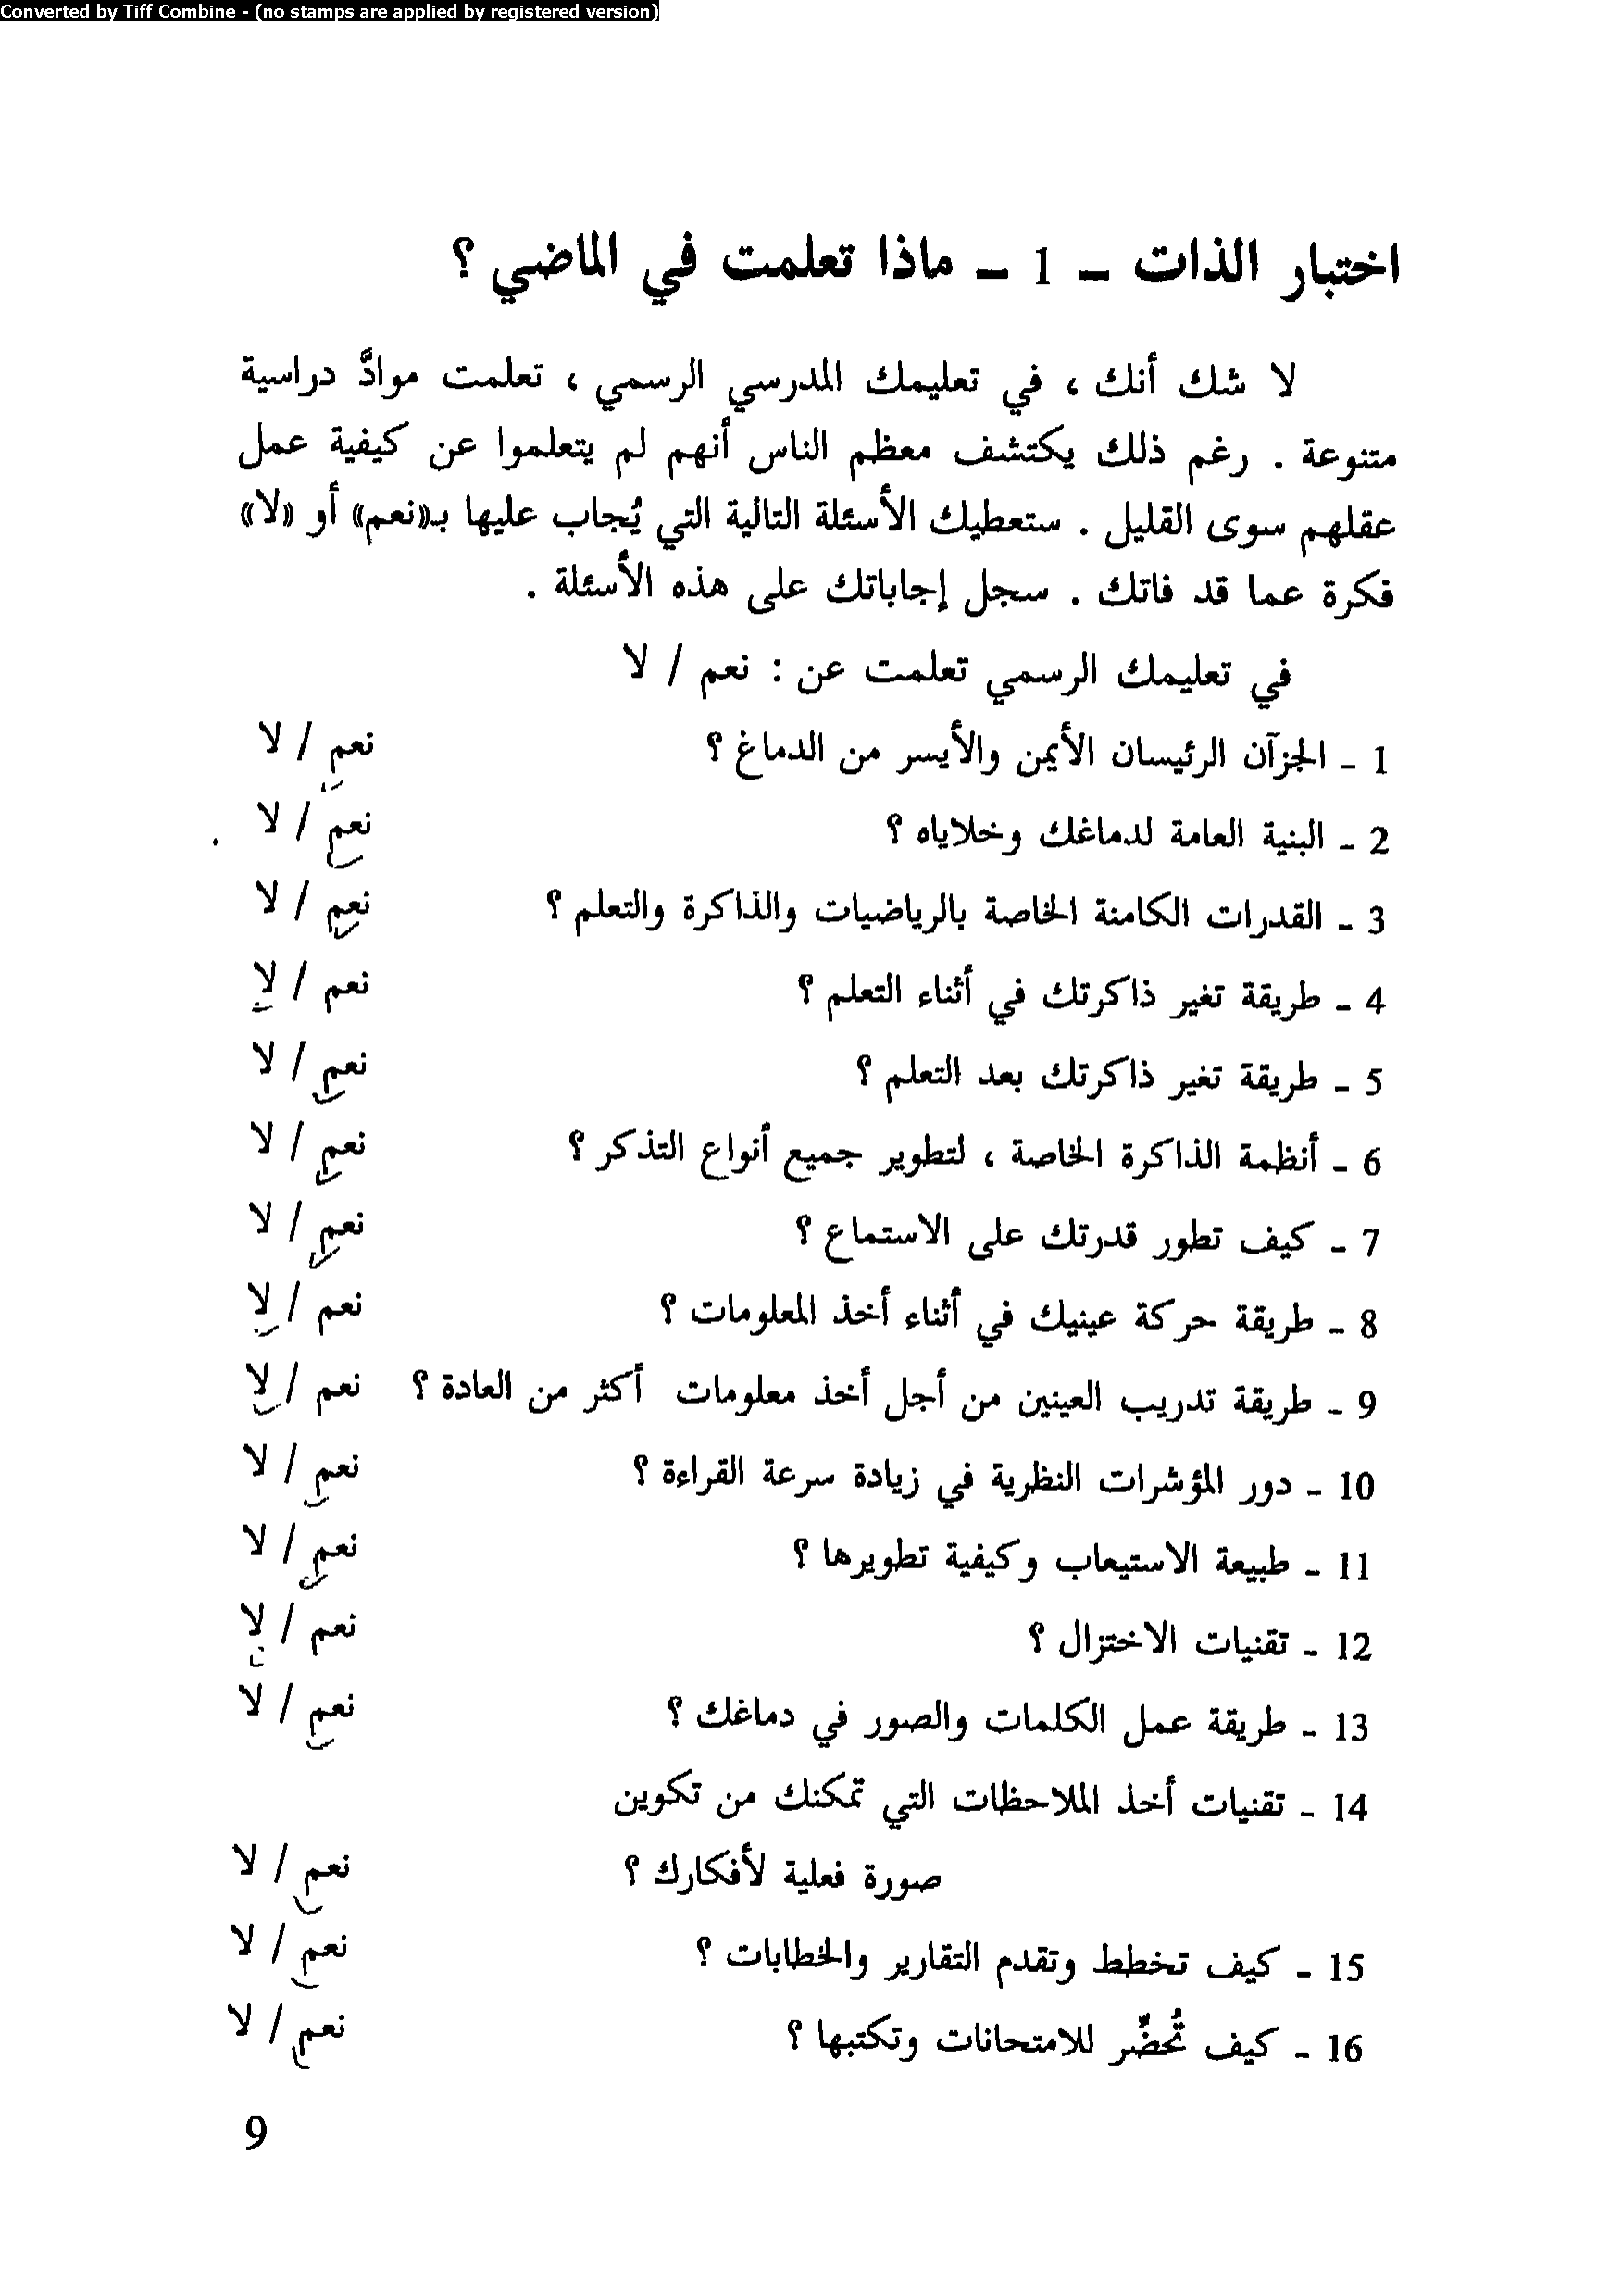 Converted by Tiff Combine - (no stamps are applied by registered version)
اختبار الذات - 1 - ماذا تعلمت في الماضي ؟
لا شك أنك ، في تعليمك المدرسي الرسمي ، تعلمت موادَّ دراسية
متنوعة . رغم ذلك يكتشف معظم الناس أنهم لم يتعلموا عن كيفية عمل
عقلهم سوى القليل . ستعطيك الأسئلة التالية التي يُجاب عليها بـ«نعم» أو «لا»
فكرة عما قد فاتك . سجل إجاباتك على هذه الأسئلة .
في تعليمك الرسمي تعلمت عن : نعم / لا
1 - الجزآن الرئيسان الأيمن والأيسر من الدماغ ؟ نعم / لا
2 - البنية العامة لدماغك وخلاياه ؟ نعم / لا
3 - القدرات الكامنة الخاصة بالرياضيات والذاكرة والتعلم ؟ نعم / لا
4 - طريقة تغير ذاكرتك في أثناء التعلم ؟ نعم / لا
5 - طريقة تغير ذاكرتك بعد التعلم ؟ نعم / لا
6 - أنظمة الذاكرة الخاصة ، لتطوير جميع أنواع التذكر ؟ نعم / لا
7 - كيف تطور قدرتك على الاستماع ؟ نعم / لا
8 - طريقة حركة عينيك في أثناء أخذ المعلومات ؟ نعم / لا
9 - طريقة تدريب العينين من أجل أخذ معلومات أكثر من العادة ؟ نعم / لا
10 - دور المؤشرات النظرية في زيادة سرعة القراءة ؟ نعم / لا
11 - طبيعة الاستيعاب وكيفية تطويرها ؟ نعم / لا
12 - تقنيات الاختزال ؟ نعم / لا
13 - طريقة عمل الكلمات والصور في دماغك ؟ نعم / لا
14 - تقنيات أخذ الملاحظات التي تمكنك من تكوين
صورة فعلية لأفكارك ؟ نعم / لا
15 - كيف تخطط وتقدم التقارير والخطابات ؟ نعم / لا
16 - كيف تُحضِّر للامتحانات وتكتبها ؟ نعم / لا
9